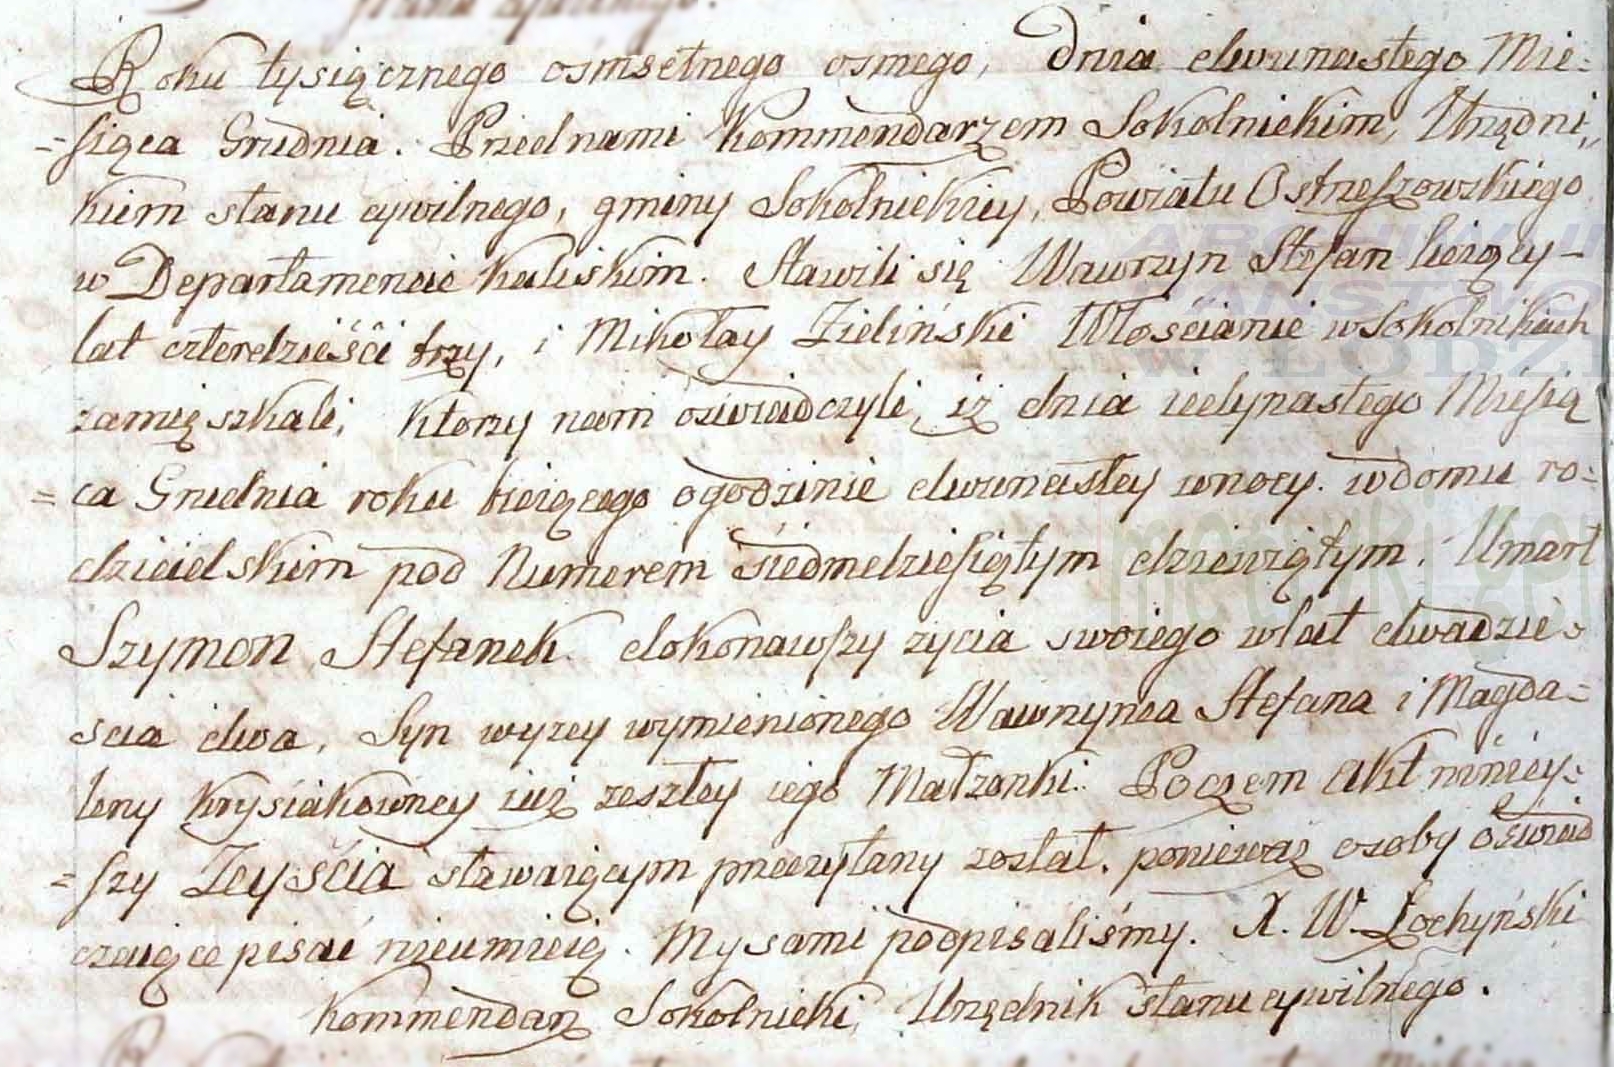 Roku tysiącznego osmsetnego osmego, Dnia dwunastego Mie=
=siąca Grudnia. Przed nami Kommendarzem Sokolnickim, Urzędni,,
kiem stanu cywilnego, gminy Sokolnickiey, Powiatu Ostrzeszowskiego
w Departamencie Kaliskim. Stawili się Wawrzyn Stefan liczący
lat czterdzieści trzy, i Mikołay Zieliński Włościanie w Sokolnikach
zamięszkali, ktorzy nam oświadczyli, iż dnia iedynastego Miesią
=ca Grudnia roku bieżącego o godzinie dwunastey w nocy. w domu ro=
dzicielskim pod Numerem siedmdziesiątym dziewiątym. Umarł
Szymon Stefanek dokonawszy zycia swoiego w lat dwadzie=
scia dwa, Syn wyzey wymienionego Wawrzynca Stefana i Magda=
leny Krysiakowney iuż zeszłey iego Małzonki. Poczem Akt niniey=
=szy Zeyścia stawaiącym przeczytany został. ponieważ osoby oświad
czaiące pisać nieumieią. My sami podpisaliśmy. X. W. Łochyński
Kommendarz Sokolnicki, Urzędnik stanu cywilnego.